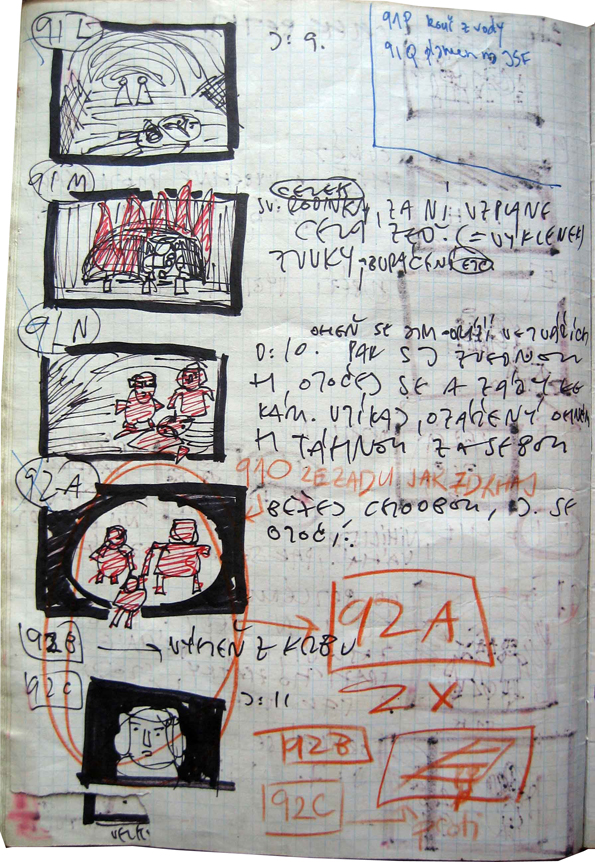 91L
D: 9.
91P kouř z vody
91Q plamen na JSF
91M
CELEK
SV: RODINKY, ZA NÍ VZPLANE
CELÁ ZEĎ. (= VÝKLENEK)
ZVUKY, BURÁCENÍ ETC.
91N
OHEŇ SE JIM
D: 10. PAK SI ZVEDNOU
M, OTOČEJ SE A
KAM. UTÍKAJ, OZÁŘENÝ OHNĚM
M TÁHNOU ZA SEBOU
92A
91O ZEZADU JAK ZDRHAJ
BĚŽEJ CHODBOU, D. SE
OTOČÍ.
92A
92B → VÝHEŇ Z KRBU
2X
92C
D: 11
92B
92C → proti